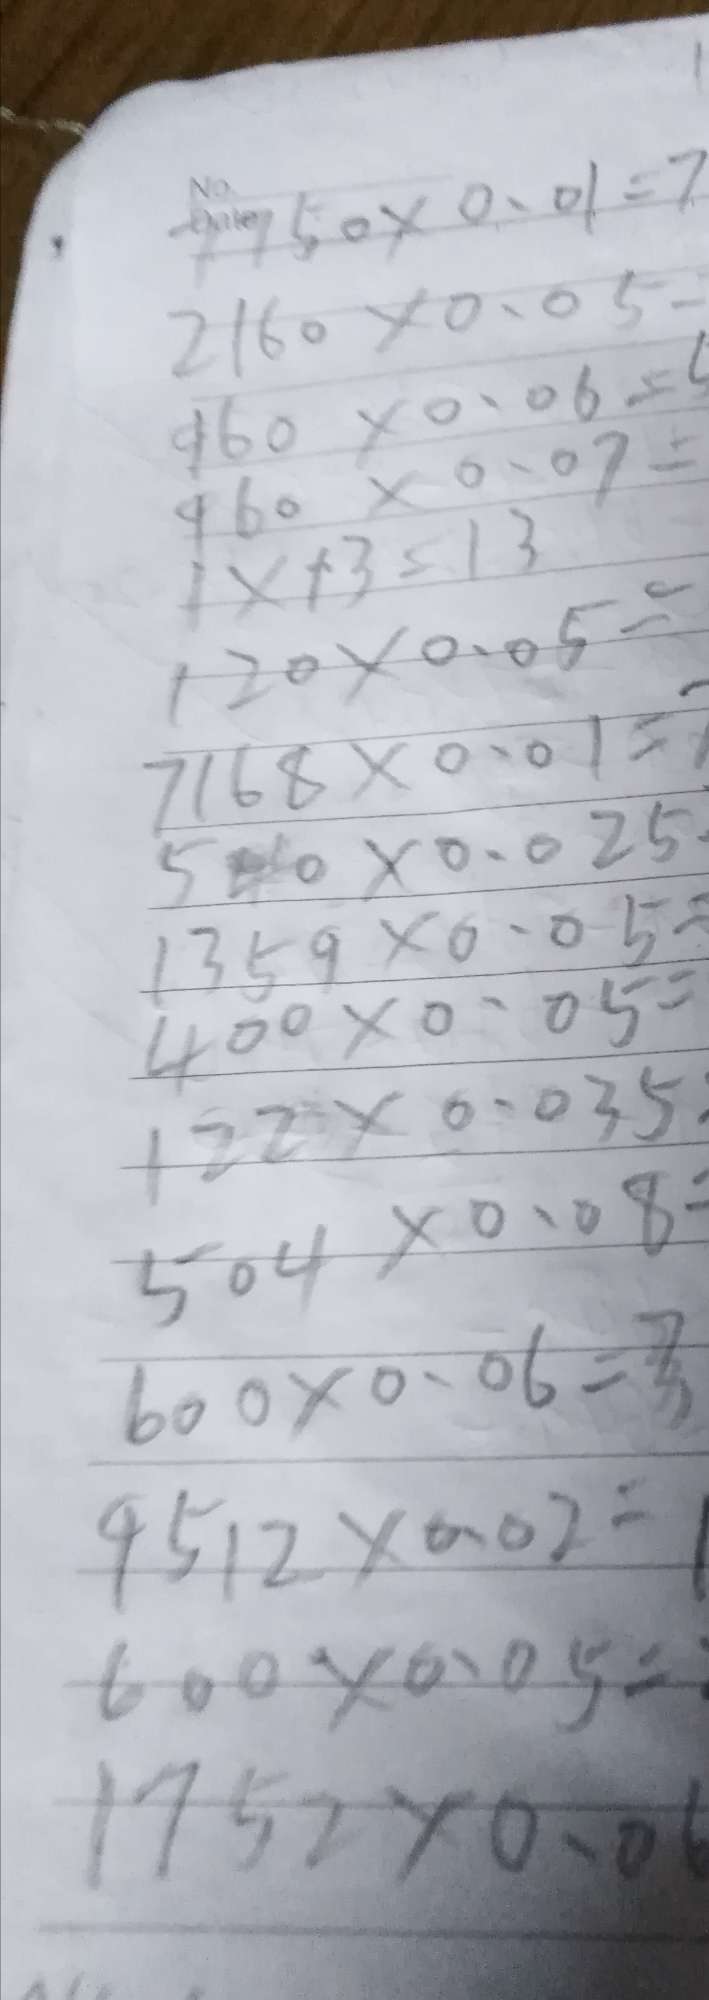 No.
Date
7750×0.01=7
2160×0.05=
960×0.06=5
960×0.07=
1x+3=13
120×0.05=
7168×0.01=7
5 0×0.025
1359×0.05=
400×0.05=
122×0.035
504×0.08=
600×0.06=3
9512×0.02=1
600×0.05=
1752×0.06